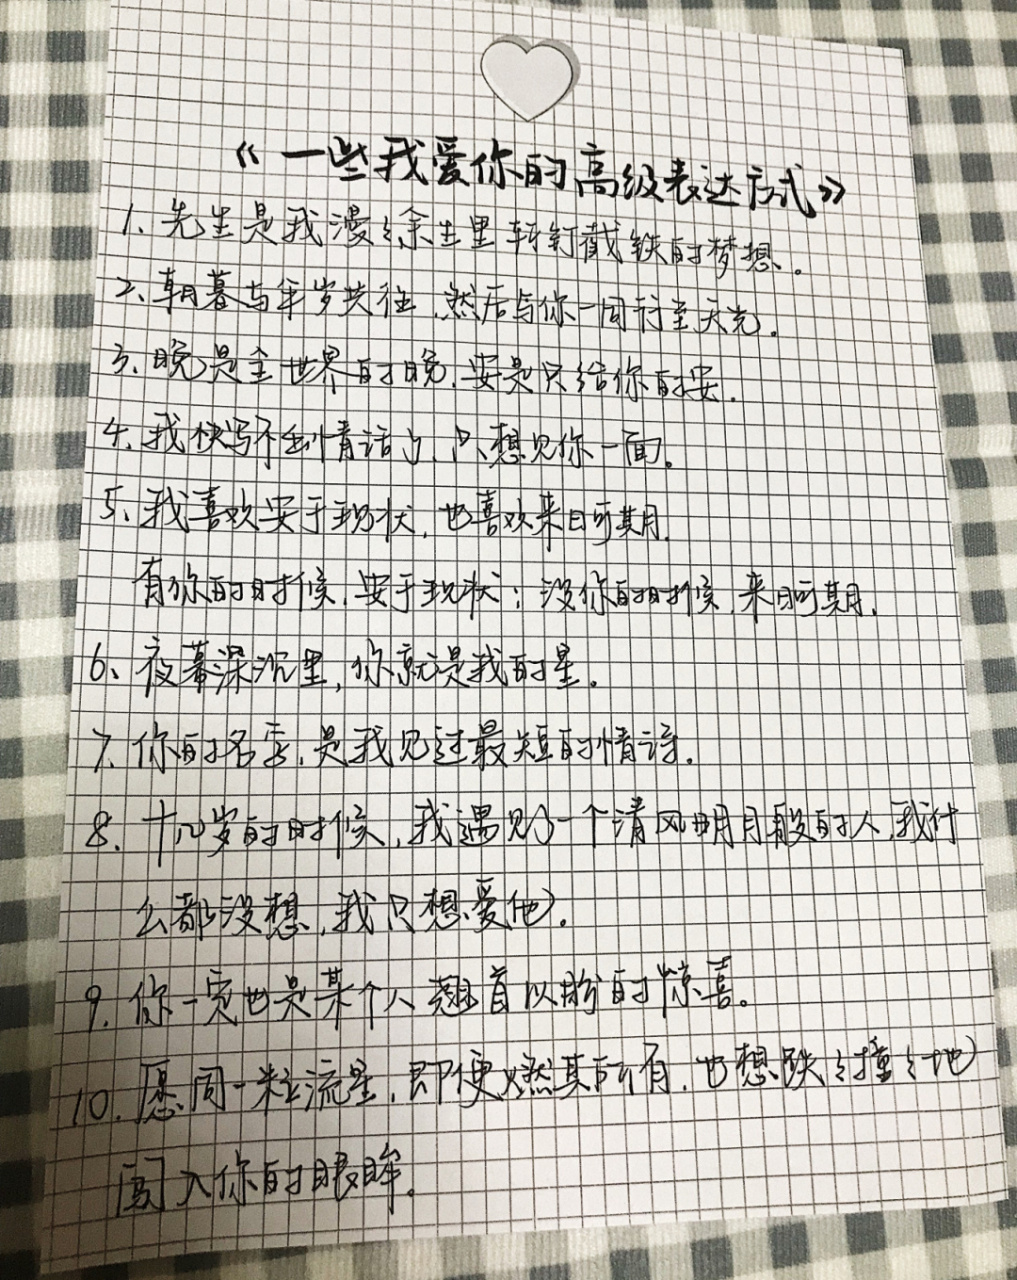 《一些我爱你的高级表达方式》
1、先生是我漫々余生里斩钉截铁的梦想。
2、朝暮与年岁共往,然后与你一同行至天光。
3、晚是全世界的晚,安是只给你的安.
4、我快写不到情话了,只想见你一面。
5、我喜欢安于现状,也喜欢来日可期.
有你的时候,安于现状;没你的时候,来日可期.
6、夜幕深沉里,你就是我的星。
7、你的名字,是我见过最短的情诗.
8、十几岁的时候,我遇见了一个清风明月般的人,我什
么都没想,我只想爱他。
9、你一定也是某个人翘首以盼的惊喜。
10、愿同一粒流星,即便燃其所有,也想跌々撞々地
闯入你的眼眸。